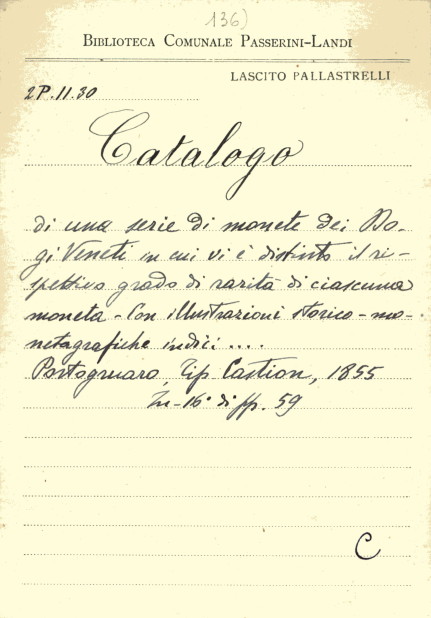 136)
BIBLIOTECA COMUNALE PASSERINI-LANDI
LASCITO PALLASTRELLI
2P.11.30
Catalogo
di una serie di monete dei Do-
gi Veneti in cui vi è distinto il ri-
spettivo grado di rarità di ciascuna
moneta - Con illustrazioni storico-mo-
netagrafiche indici ....
Portogruaro, Tip Castion, 1855
In-16° di pp. 59
C